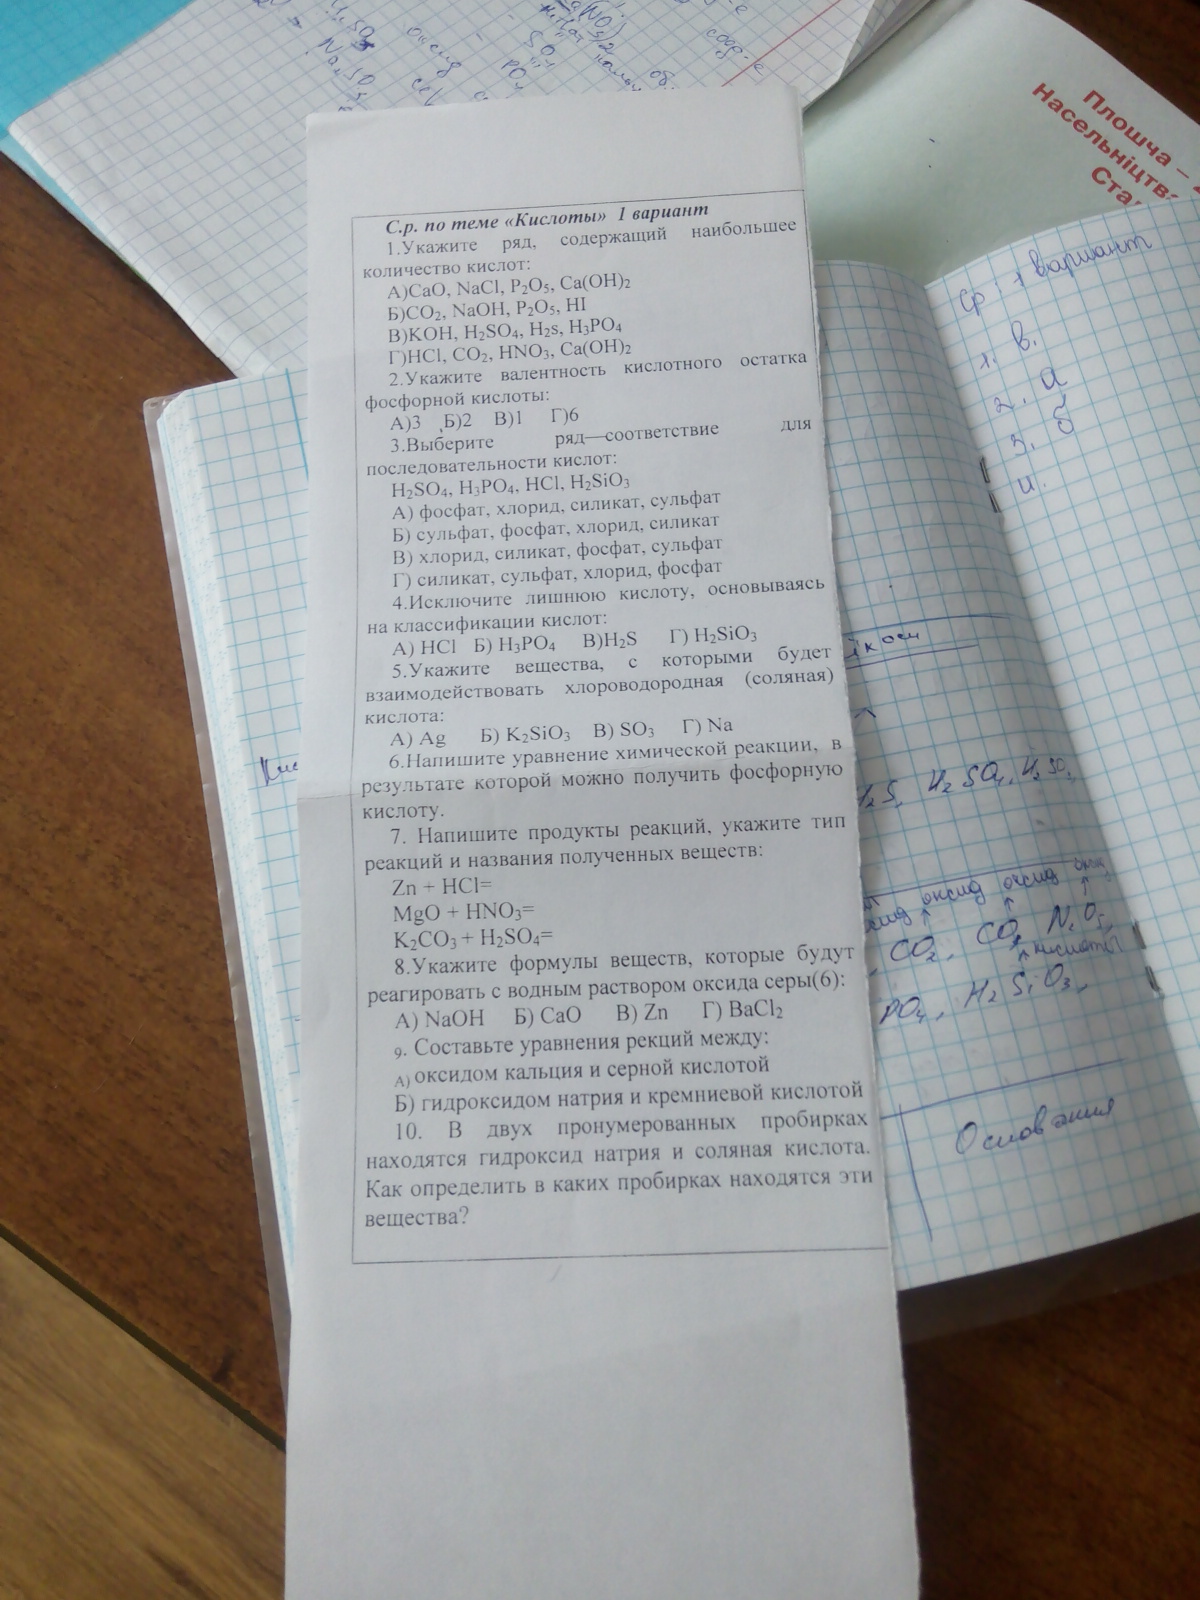 Плошча –
Насельніцтва
С.р. по теме «Кислоты» 1 вариант
1.Укажите ряд, содержащий наибольшее
количество кислот:
А)CaO, NaCl, P₂O₅, Ca(OH)₂
Б)CO₂, NaOH, P₂O₅, HI
В)KOH, H₂SO₄, H₂s, H₃PO₄
Г)HCl, CO₂, HNO₃, Ca(OH)₂
2.Укажите валентность кислотного остатка
фосфорной кислоты:
А)3 Б)2 В)1 Г)6
3.Выберите ряд—соответствие для
последовательности кислот:
H₂SO₄, H₃PO₄, HCl, H₂SiO₃
А) фосфат, хлорид, силикат, сульфат
Б) сульфат, фосфат, хлорид, силикат
В) хлорид, силикат, фосфат, сульфат
Г) силикат, сульфат, хлорид, фосфат
4.Исключите лишнюю кислоту, основываясь
на классификации кислот:
А) HCl Б) H₃PO₄ В)H₂S Г) H₂SiO₃
5.Укажите вещества, с которыми будет
взаимодействовать хлороводородная (соляная)
кислота:
А) Ag Б) K₂SiO₃ В) SO₃ Г) Na
6.Напишите уравнение химической реакции, в
результате которой можно получить фосфорную
кислоту.
7. Напишите продукты реакций, укажите тип
реакций и названия полученных веществ:
Zn + HCl=
MgO + HNO₃=
K₂CO₃ + H₂SO₄=
8.Укажите формулы веществ, которые будут
реагировать с водным раствором оксида серы(6):
А) NaOH Б) CaO В) Zn Г) BaCl₂
9. Составьте уравнения рекций между:
А) оксидом кальция и серной кислотой
Б) гидроксидом натрия и кремниевой кислотой
10. В двух пронумерованных пробирках
находятся гидроксид натрия и соляная кислота.
Как определить в каких пробирках находятся эти
вещества?
Ср 1 вариант
1. в.
2. а
3. б
4.
H₂SO₄,
оксид оксид
CO₂,
кислоты
PO₄, H₂SiO₃,
Основания